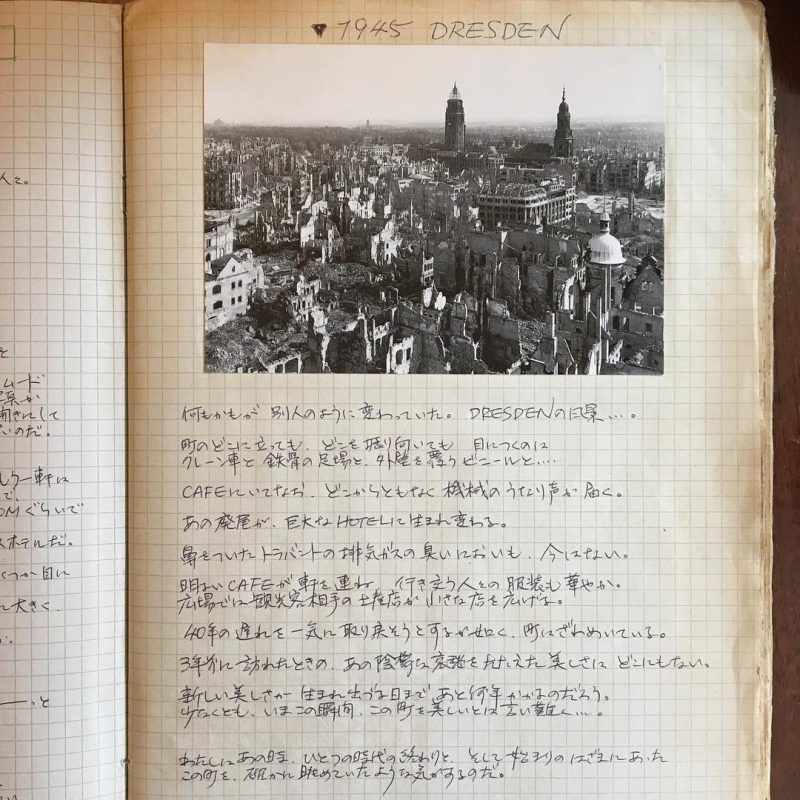 ▼1945 DRESDEN
何もかもが 別人のように変わっていた。 DRESDENの風景…。
町のどこに立っても、どこを振り向いても 目につくのは
クレーン車と 鉄骨の足場と、外壁を覆うビニールと….
CAFEにいてなお、どこからともなく 機械のうなり声が届く。
あの廃屋が、巨大なHOTELに生まれ変わる。
鼻をついたトラバントの排気ガスの臭いにおいも、今はない。
明るいCAFEが軒を連ね、行き交う人々の服装も華やか。
広場では観光客相手の土産店が小さな店を広げる。
40年の遅れを一気に取り戻そうとするが如く、町はざわめいている。
3年前に訪れたときの、あの陰鬱な表情をたたえた美しさは どこにもない。
新しい美しさが 生まれ出づる日まで、あと何年かかるのだろう。
少なくとも、いまこの瞬間、この町を美しいとは言い難く…。
わたしはあの時、ひとつの時代の終わりと、そして始まりのはざまにあった
この町を、確かに眺めていたような気がするのだ。
人々。
と
ムード
開きにして
いのだ。
もう一軒は
で、
DMぐらいで
スホテルだ。
くつか目に
に大きく
か。
っと